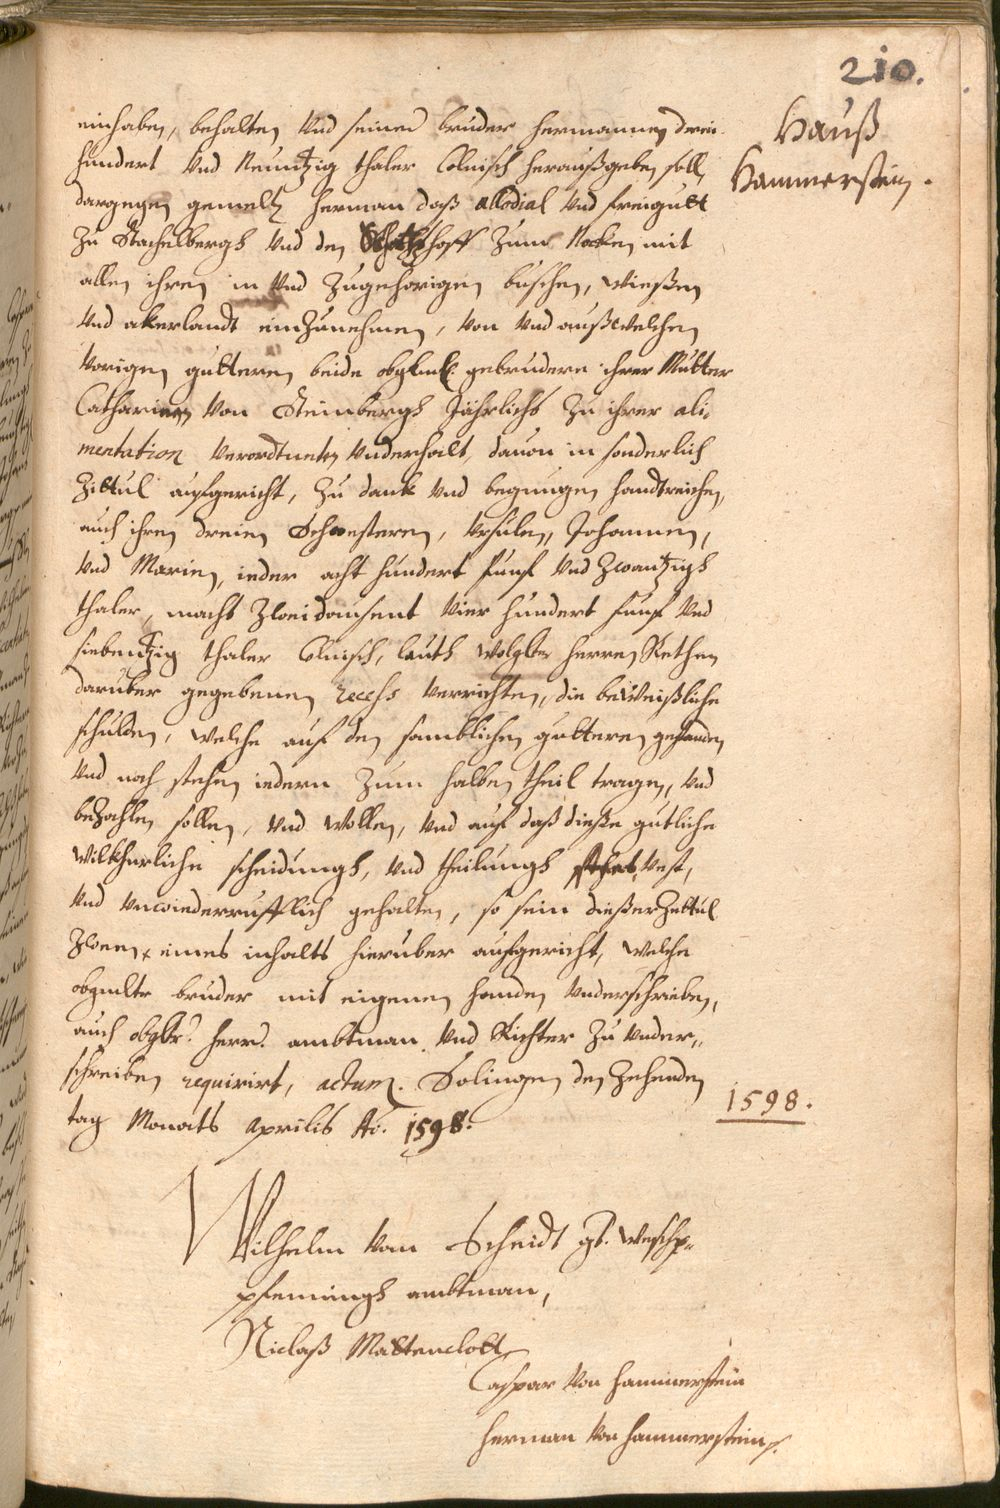 210.
Hauß
Hammerstein.
einhaben, behalten und seinen bruder Hermannen drei
hundert und Neuntzig thaler Colnisch heraußgeben soll,
dargegen gemelter Herman daß allodial und freigutt
zu Stachelbergh und den hoff zum Nocken mit
allen ihren in und zugehorigen büschen, wießen
und akerlandt einzunehmen, von und auß welchen
vorigen gutteren beide obglmt. gebrudere ihrer Mutter
Catharinen von Steinbergh Jährlichs zu ihrer ali-
mentation verordtneten underhalt, davon in sonderlich
Zittul aufgericht, zu dank und begnugen handtreichen,
auch ihren dreien Schwesteren, Ursulen, Johannen,
und Marien, ieder acht hundert funf und zwantzigh
thaler, macht zweidausent vier hundert funf und
siebentzig thaler Colnisch, lauth wolglter herren Rethen
daruber gegebenen recess verrichten, die beweißliche
schulden, welche auf den samblichen gutteren gestanden
und noch stehen iedern zum halben theil tragen, und
bezahlen sollen, und wollen, und auf daß dieße gutliche
wilkhurliche scheidungh, und theilungh stehet, vest,
und unwiederrufflich gehalten, so sein dießer Zettul
zween eines inhalts hieruber aufgericht, welche
obgmlte bruder mit eigenen handen underschrieben,
auch obgltr. herr. ambtman und Richter zu under-
schreiben requirirt, actum. Solingen den Zehenden
tag Monats Aprilis Ao. 1598.
1598.
Wilhelm von Scheidt gt. weschp-
pfenningh ambtman,
Niclaß Mattenclott
Caspar von Hammerstein
Herman von Hammerstein